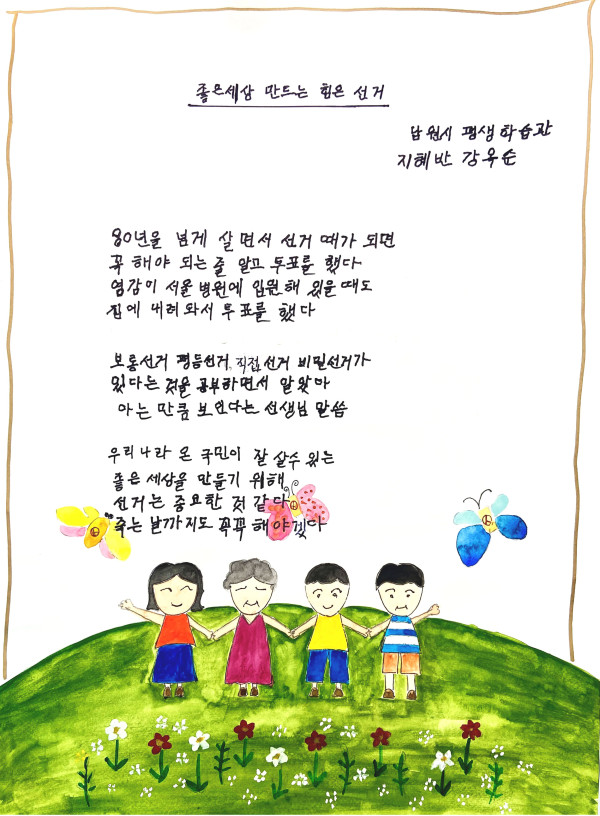 좋은세상 만드는 힘은 선거
남원시 평생학습관
지혜반 강옥순
80년을 넘게 살면서 선거 때가 되면
꼭 해야 되는 줄 알고 투표를 했다
영감이 서울 병원에 입원해 있을 때도
집에 내려와서 투표를 했다
보통선거 평등선거, 직접 선거 비밀선거가
있다는 것을 공부하면서 알았아
아는 만큼 보인다는 선생님 말씀
우리나라 온 국민이 잘 살수 있는
좋은 세상을 만들기 위해
선거는 중요한 것 같다
죽는 날까지도 꼭꼭 해야겠다